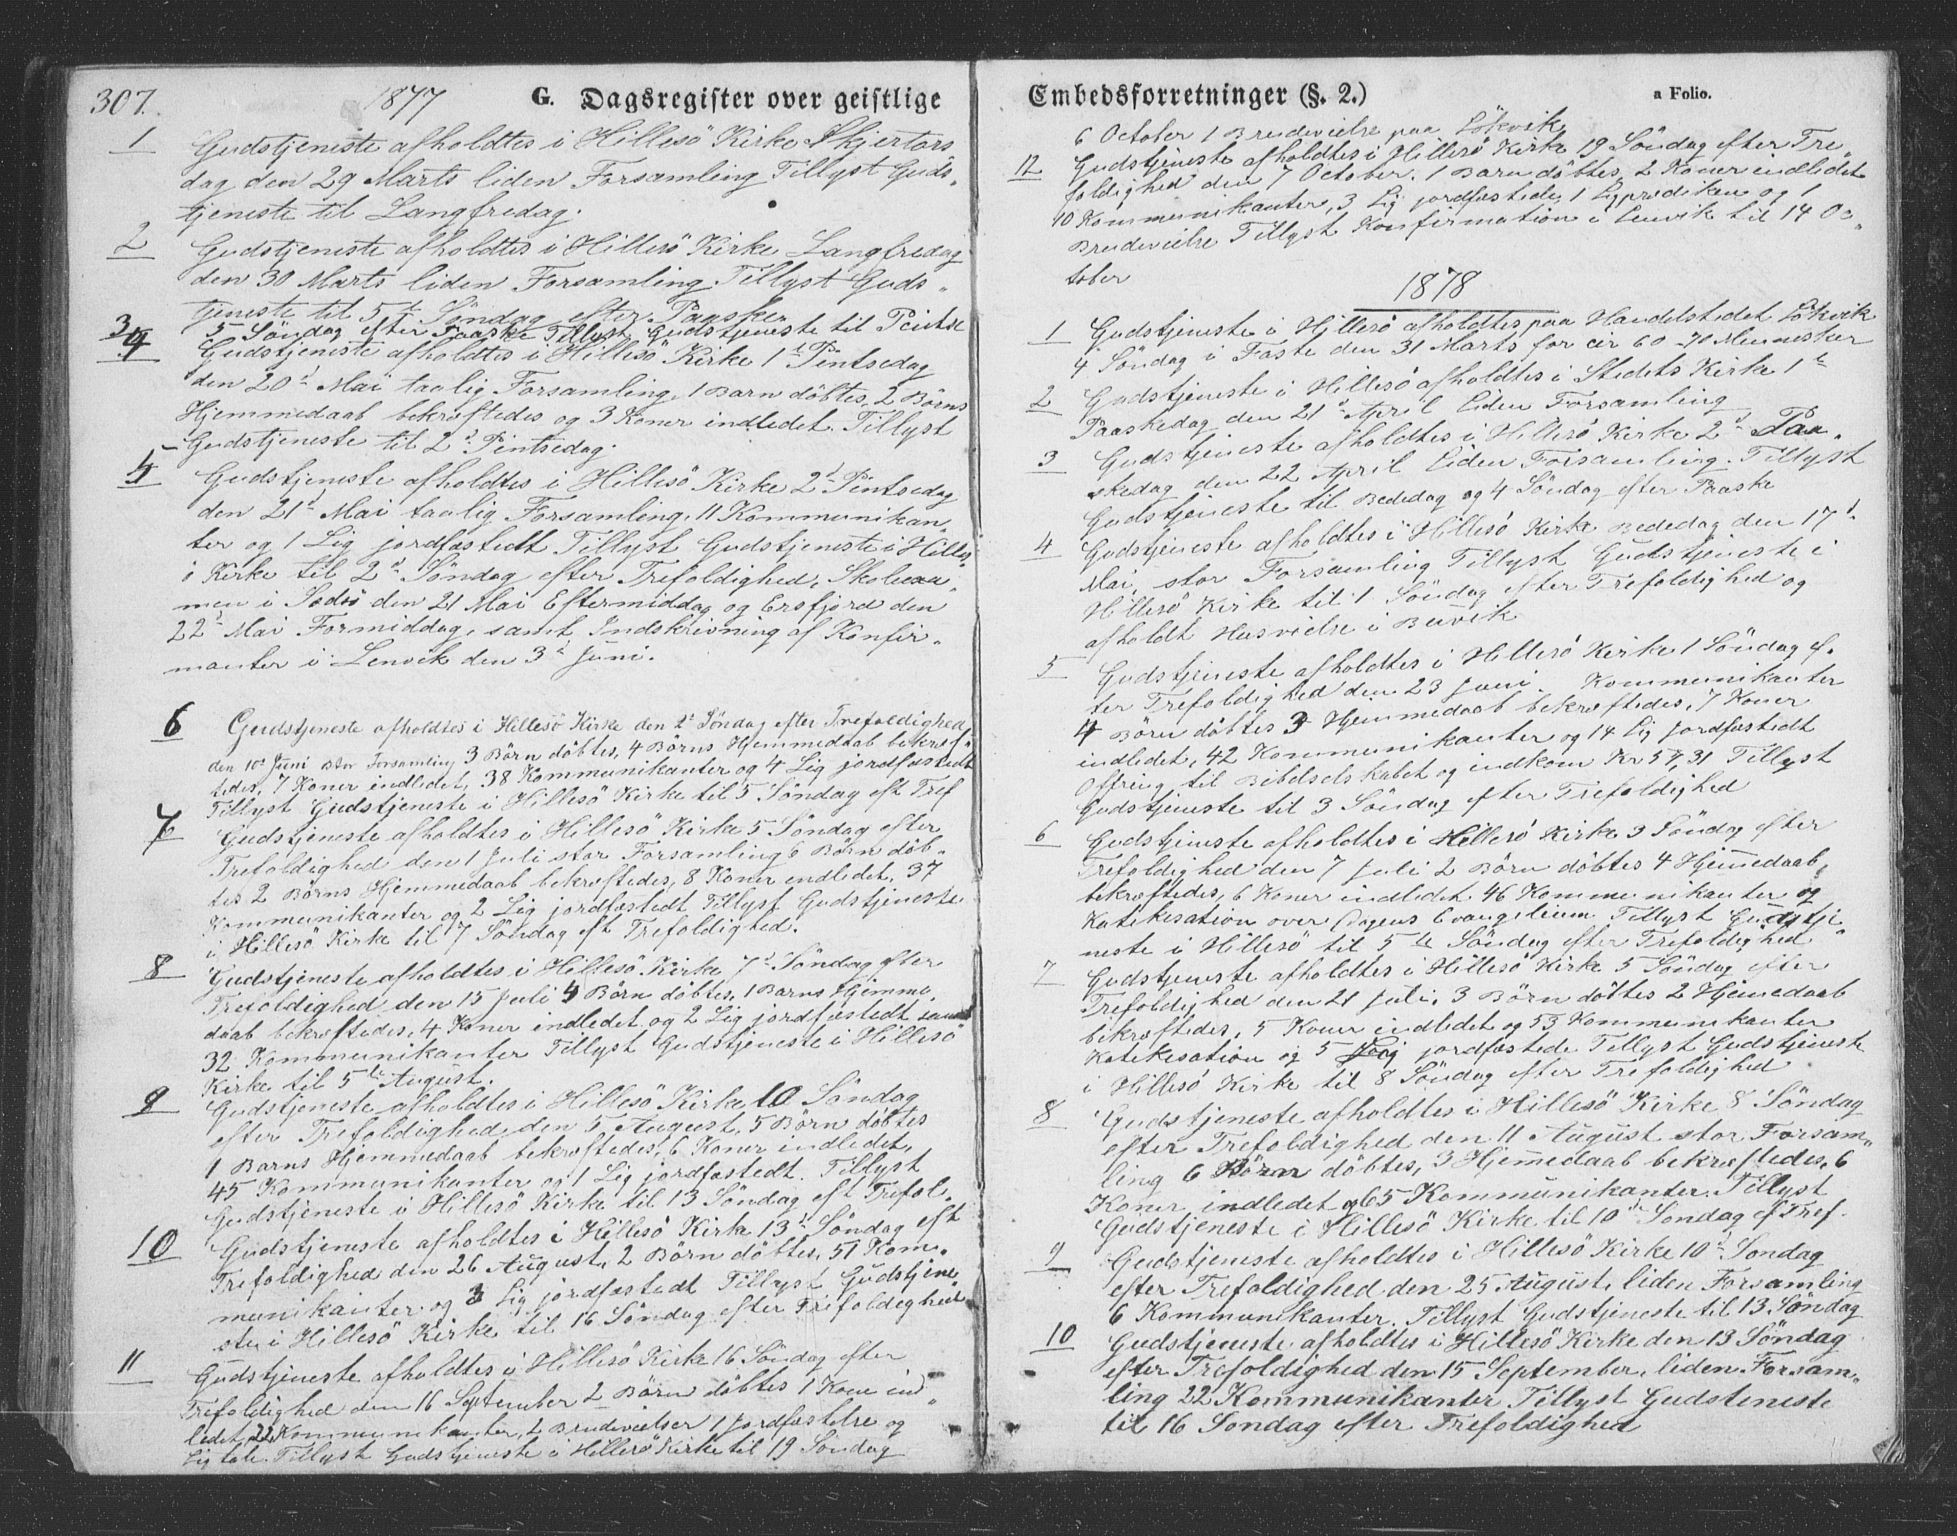 307.
1877
G. Dagsregister over geistlige
1 Gudstjeniste afholdtes i Hillesö Kirke Skjertors
dag den 29 Marts liden Forsamling Tillyst Guds„
tjeneste til Langfredag.
2 Gudstjeneste afholdtes i Hillesö Kirke Langfredag
den 30 Marts liden Forsamling Tillyst Guds„
tjeneste til 5te Söndag efter Paaske
3 5 Söndag efter Paaske Tillyst Gudstjeneste til Pintse
4 Gudstjeneste afholdtes i Hillesö Kirke 1t Pintsedag
den 20d Mai taalig Forsamling, 1 Barn döbtes, 2 Börns
Hjemmedaab bekræftedes og 3 Koner indledet. Tillyst
Gudstjeneste til 2d Pintsedag.
5 Gudstjeneste afholdtes i Hillesö Kirke 2d Pintsedag
den 21d Mai taalig Forsamling, 11 Kommunikan„
ter og 1 Lig jordfæstedt Tillyst Gudstjeneste i Hilles
ö Kirke til 2d Söndag efter Trefoldighed, Skoleexa„
men i den 21 Mai Eftermiddag og Ersfjord den
22d Mai Formiddag, samt Indskrivning af Konfir„
manter i Lenvik den 3d Juni.
6 Gudstjeneste afholdtes i Hillesö Kirke den 2d Söndag efter Trefoldighed
den 10d Juni stor Forsamling 3 Börn döbtes, 4 Börns Hjemmedaab bekræf„
tedes, 7 Koner indledet, 38 Kommunikanter og 4 Lig jordfæstedt
Tillyst Gudstjeneste i Hillesö Kirke til 5 Söndag eft Tref
7 Gudstjeneste afholdtes i Hillesö Kirke 5 Söndag efter
Trefoldighed den 1 Juli stor Forsamling 6 Börn döb„
tes 2 Börns Hjemmedaab bekræftedes, 8 Koner indledet, 37
Kommunikanter og 2 Lig jordfæstedt Tillyst Gudstjeneste
i Hillesö Kirke til 7 Söndag eft Trefoldighed.
8 Gudstjeneste afholdtes i Hillesö Kirke 7d Söndag efter
Trefoldighed den 15 Juli 4 Börn döbtes, 1 Barns Hjemme„
daab bekræftedes, 4 Koner indledet og 2 Lig jordfæstedt samt
32 Kommunikanter Tillyst Gudstjeneste i Hillesö
Kirke til 5te August.
9 Gudstjeneste afholdtes i Hillesö Kirke 10 Söndag
efter Trefoldighed den 5 August, 5 Börn döbtes
1 Barns Hjemmedaab bekræftedes, 6 Koner indledet,
45 Kommunikanter og 1 Lig jordfæstedt. Tillyst
Gudstjeneste i Hillesö Kirke til 13 Söndag eft Trefol.
10 Gudstjeneste afholdtes i Hillesö Kirke 13d Söndag eft
Trefoldighed den 26 August, 2 Börn döbtes, 51 Kom„
munikanter og 3 Lig jordfæstedt Tillyst Gudstjene„
ste i Hillesö Kirke til 16 Söndag efter Trefoldighed
11 Gudstjeneste afholdtes i Hillesö Kirke 16 Söndag efter
Trefoldighed den 16 September 2 Börn döbtes 1 Kone ind„
ledet, 22 Kommunikanter, 2 Brudevielser 1 Jordfæstelse og
Ligtale. Tillyst Gudstjeneste i Hillesö Kirke til 19 Söndag
Embedsforretninger (§. 2.)
a Folio.
6 October 1 Brudevielse paa Lökvik
12 Gudstjeneste afholdtes i Hillesö Kirke 19 Söndag efter Tre„
foldighed den 7 October. 1 Barn döbtes, 2 Koner indledet
10 Kommunikanter, 3 Lig jordfæstede, 1 Ligprædiken og 1
Brudevielse Tillyst Konfirmation i Lenvik til 14 Oc„
tober
1878
1 Gudstjeneste i Hillesö afholdtes paa Handelstedet Lökvik
4 Söndag i Faste den 31 Marts for cir 60-70 Mennesker
2 Gudstjeneste i Hillesö afholdtes i Stedets Kirke 1te
Paaskedag den 21d April liden Forsamling
3 Gudstjeneste afholdtes i Hillesö Kirke 2d Paa„
skedag den 22 April liden Forsamling. Tillyst
Gudstjeneste til Bededag og 4 Söndag efter Paaske
4 Gudstjeneste afholdtes i Hillesö Kirke Bededag den 17d
Mai, stor Forsamling Tillyst Gudstjeneste i
Hillesö Kirke til 1 Söndag efter Trefoldighed og
afholdt Husvielse i
5 Gudstjeneste afholdtes i Hillesö Kirke 1 Söndag ef„
ter Trefoldighed den 23 Juni. Kommunikanter
4 Börn döbtes 3 Hjemmedaab bekræftedes, 7 Koner
indledet, 42 Kommunikanter og 14 Lig jordfæstedt
Offring til Bibelselskabet og indkom Kr 54,31 Tillyst
Gudstjeneste til 3 Söndag efter Trefoldighed
6 Gudstjeneste afholdtes i Hillesö Kirke 3 Söndag efter
Trefoldighed den 7 Juli 2 Börn döbtes 4 Hjem̅edaab
bekræftedes, 6 Koner indledet 46 Kommunikanter og
Katekisation over Dagens Evangelium Tillyst Gudstje„
neste i Hillesö til 5te Söndag efter Trefoldighed
7 Gudstjeneste afholdtes i Hillesö Kirke 5 Söndag efter
Trefoldighed den 21 Juli, 3 Börn döbtes 2 Hjem̅edaab
bekræftedes, 5 Koner indledet og 53 Kommunikanter
Katekisation og 5 Lig jordfæstede Tillyst Gudstjeneste
i Hillesö Kirke til 8 Söndag efter Trefoldighed
8 Gudstjeneste afholdtes i Hillesö Kirke 8 Söndag
efter Trefoldighed den 11 August stor Forsam„
ling 6 Börn döbtes, 3 Hjem̅edaab bekræftedes, 6
Koner indledet og 65 Kommunikanter. Tillyst
Gudstjeneste i Hillesö Kirke til 10de Söndag ef Tref.
9 Gudstjeneste afholdtes i Hillesö Kirke 10d Söndag
efter Trefoldighed den 25 August, liden Forsamling
6 Kommunikanter. Tillyst Gudstjeneste til 13 Söndag
10 Gudstjeneste afholdtes i Hillesö Kirke den 13 Söndag
efter Trefoldighed den 15 September, liden Forsam„
ling 22 Kommunikanter Tillyst Gudsteneste
til 16 Söndag efter Trefoldighed